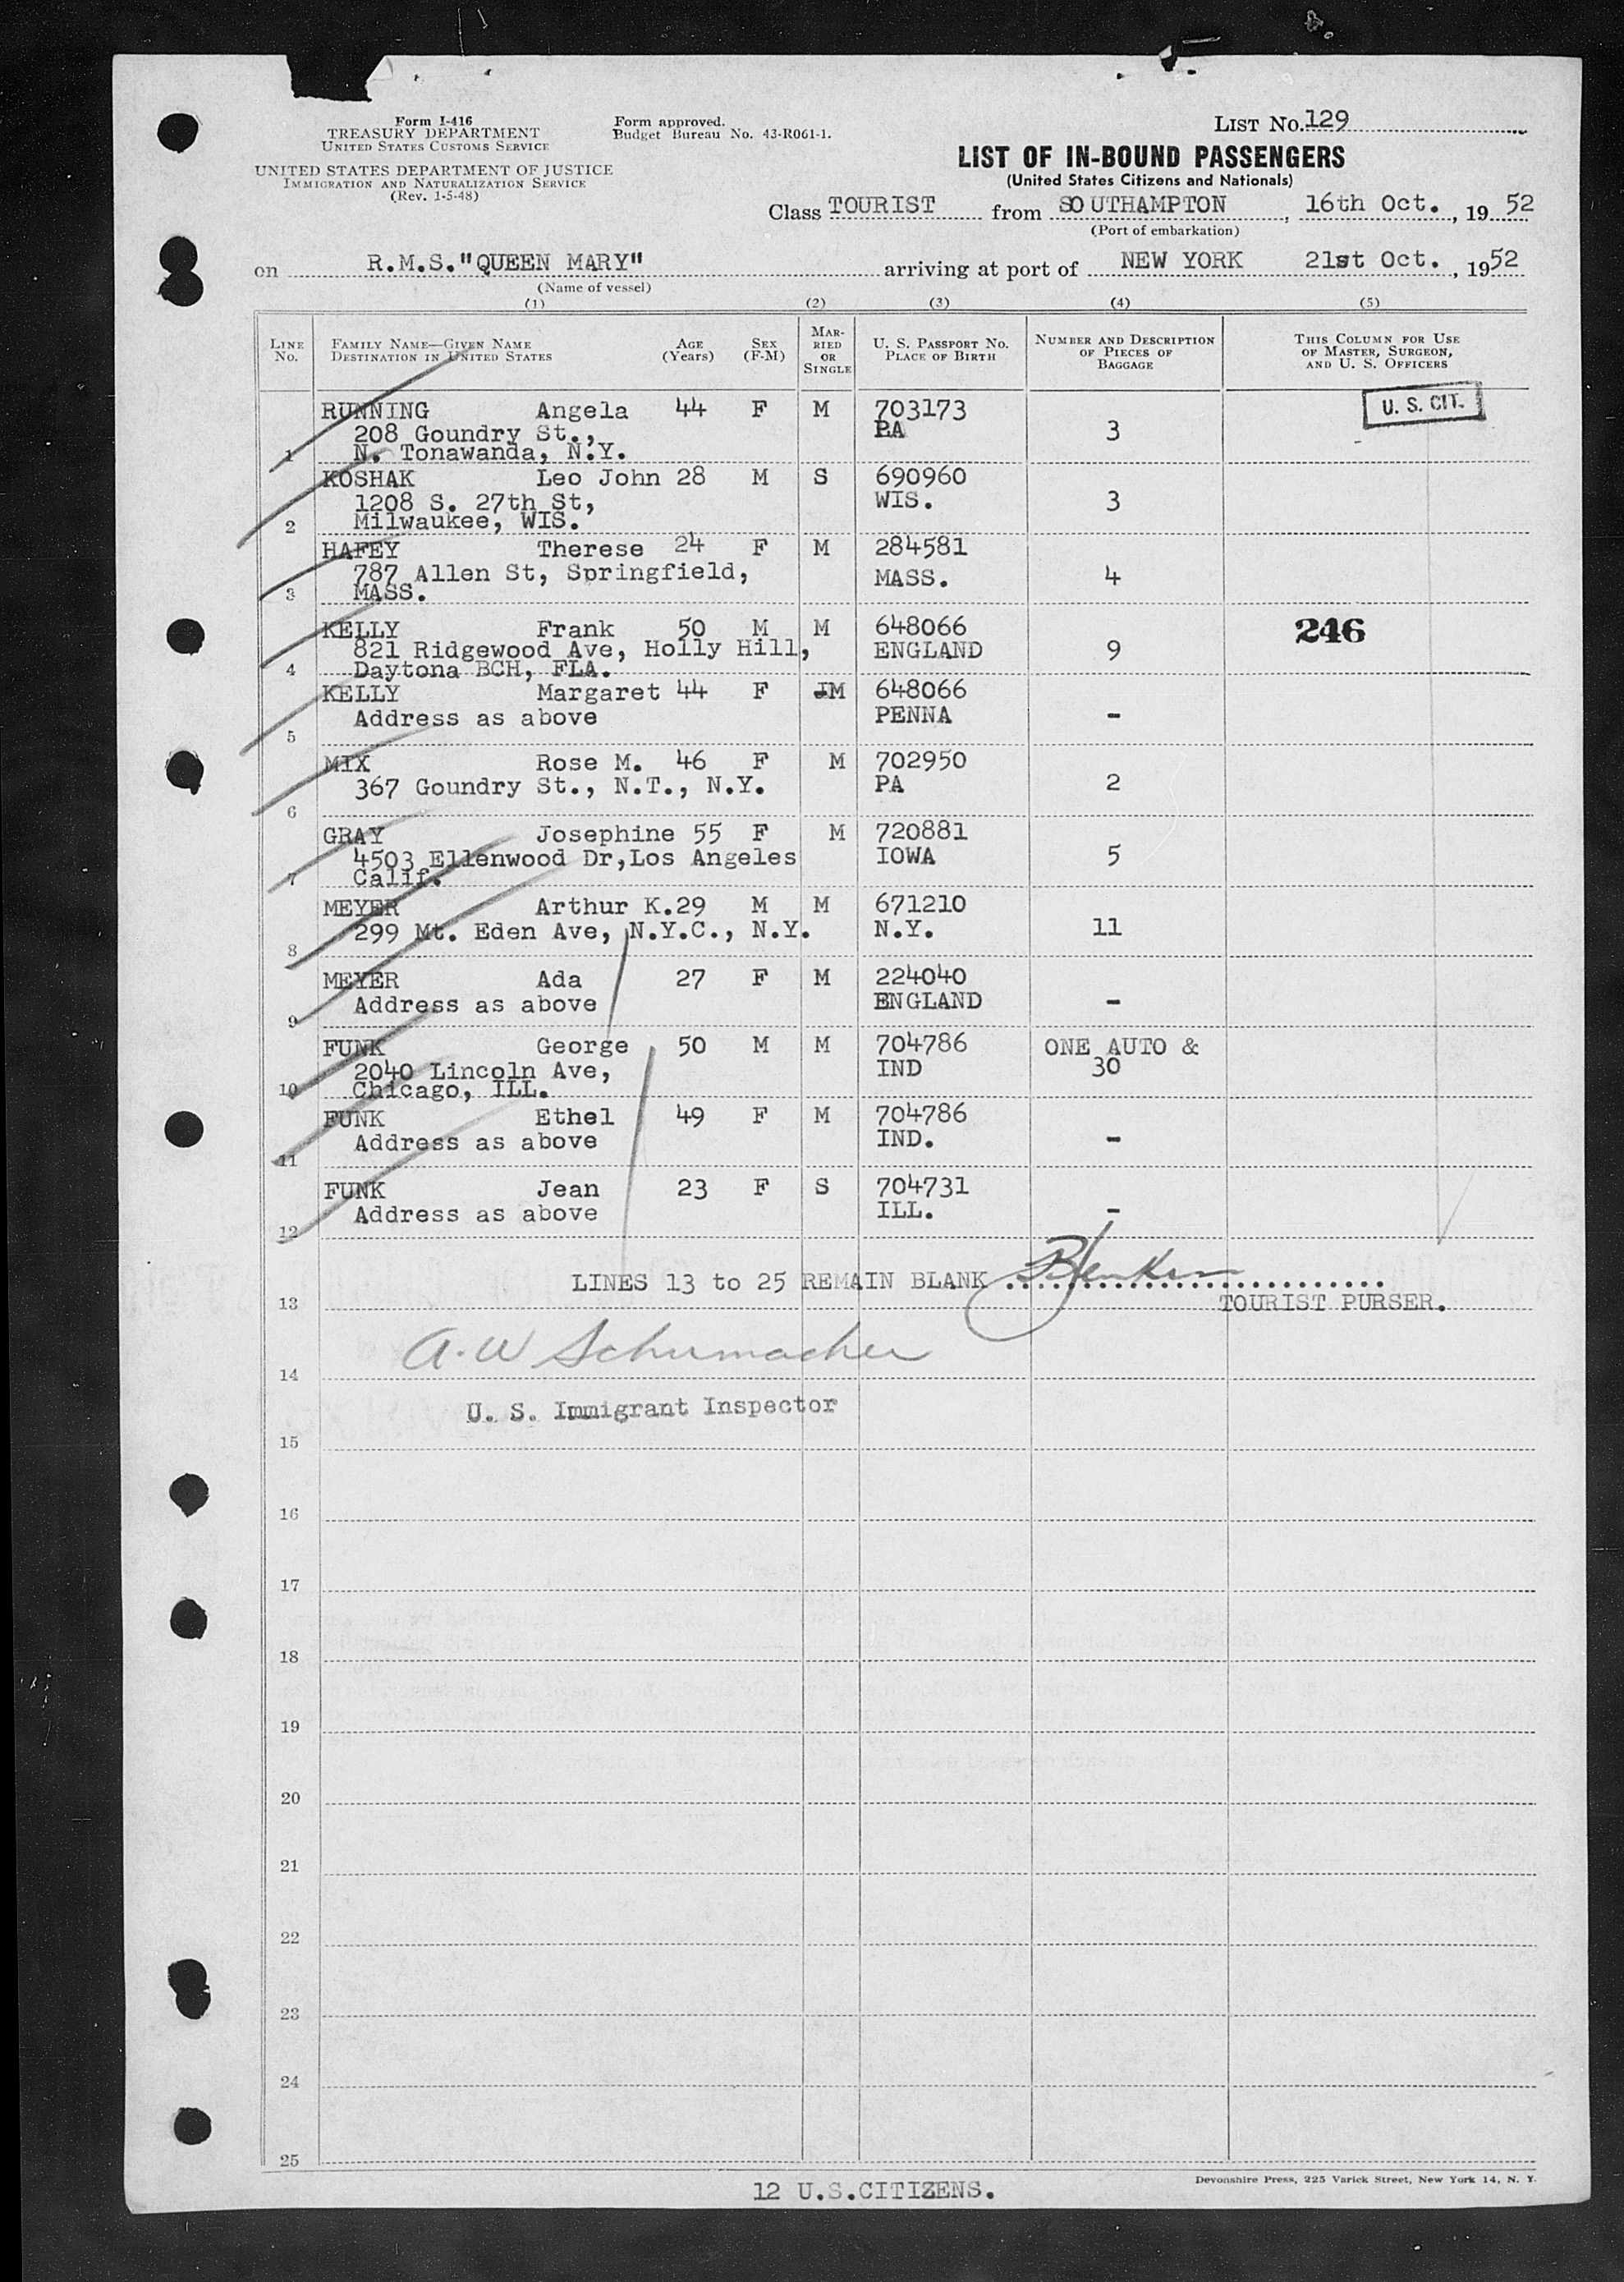 Form I-416
TREASURY DEPARTMENT
UNITED STATES CUSTOMS SERVICE
UNITED STATES DEPARTMENT OF JUSTICE
IMMIGRATION AND NATURALIZATION SERVICE
(Rev. 1-5-48)
Form approved.
Budget Bureau No. 43-R061-1.
LIST No. 129
LIST OF IN-BOUND PASSENGERS
(United States Citizens and Nationals)
Class TOURIST from SOUTHAMPTON, 16th Oct., 1952
(Port of embarkation)
on R.M.S."QUEEN MARY" arriving at port of NEW YORK 21st Oct., 1952
(Name of vessel)
(1) (2) (3) (4) (5)
LINE No. FAMILY NAME—GIVEN NAME DESTINATION IN UNITED STATES AGE (Years) SEX (F-M) MARRIED OR SINGLE U. S. PASSPORT No. PLACE OF BIRTH NUMBER AND DESCRIPTION OF PIECES OF BAGGAGE THIS COLUMN FOR USE OF MASTER, SURGEON, AND U. S. OFFICERS
RUNNING Angela 44 F M 703173 U. S. CIT.
208 Goundry St., PA 3
1 N. Tonawanda, N.Y.
KOSHAK Leo John 28 M S 690960
1208 S. 27th St, WIS. 3
2 Milwaukee, WIS.
HAFEY Therese 24 F M 284581
787 Allen St, Springfield, MASS. 4
3 MASS.
KELLY Frank 50 M M 648066 246
821 Ridgewood Ave, Holly Hill, ENGLAND 9
4 Daytona BCH, FLA.
KELLY Margaret 44 F M 648066
Address as above PENNA -
5
MIX Rose M. 46 F M 702950
367 Goundry St., N.T., N.Y. PA 2
6
GRAY Josephine 55 F M 720881
4503 Ellenwood Dr,Los Angeles IOWA 5
7 Calif.
MEYER Arthur K. 29 M M 671210
299 Mt. Eden Ave, N.Y.C., N.Y. N.Y. 11
8
MEYER Ada 27 F M 224040
Address as above ENGLAND -
9
FUNK George 50 M M 704786 ONE AUTO &
2040 Lincoln Ave, IND 30
10 Chicago, ILL.
FUNK Ethel 49 F M 704786
Address as above IND. -
11
FUNK Jean 23 F S 704731
Address as above ILL. -
12
LINES 13 to 25 REMAIN BLANK
13 TOURIST PURSER.
A. W Schumacher
14
U. S. Immigrant Inspector
15
16
17
18
19
20
21
22
23
24
25
Devonshire Press, 225 Varick Street, New York 14, N. Y.
12 U.S.CITIZENS.